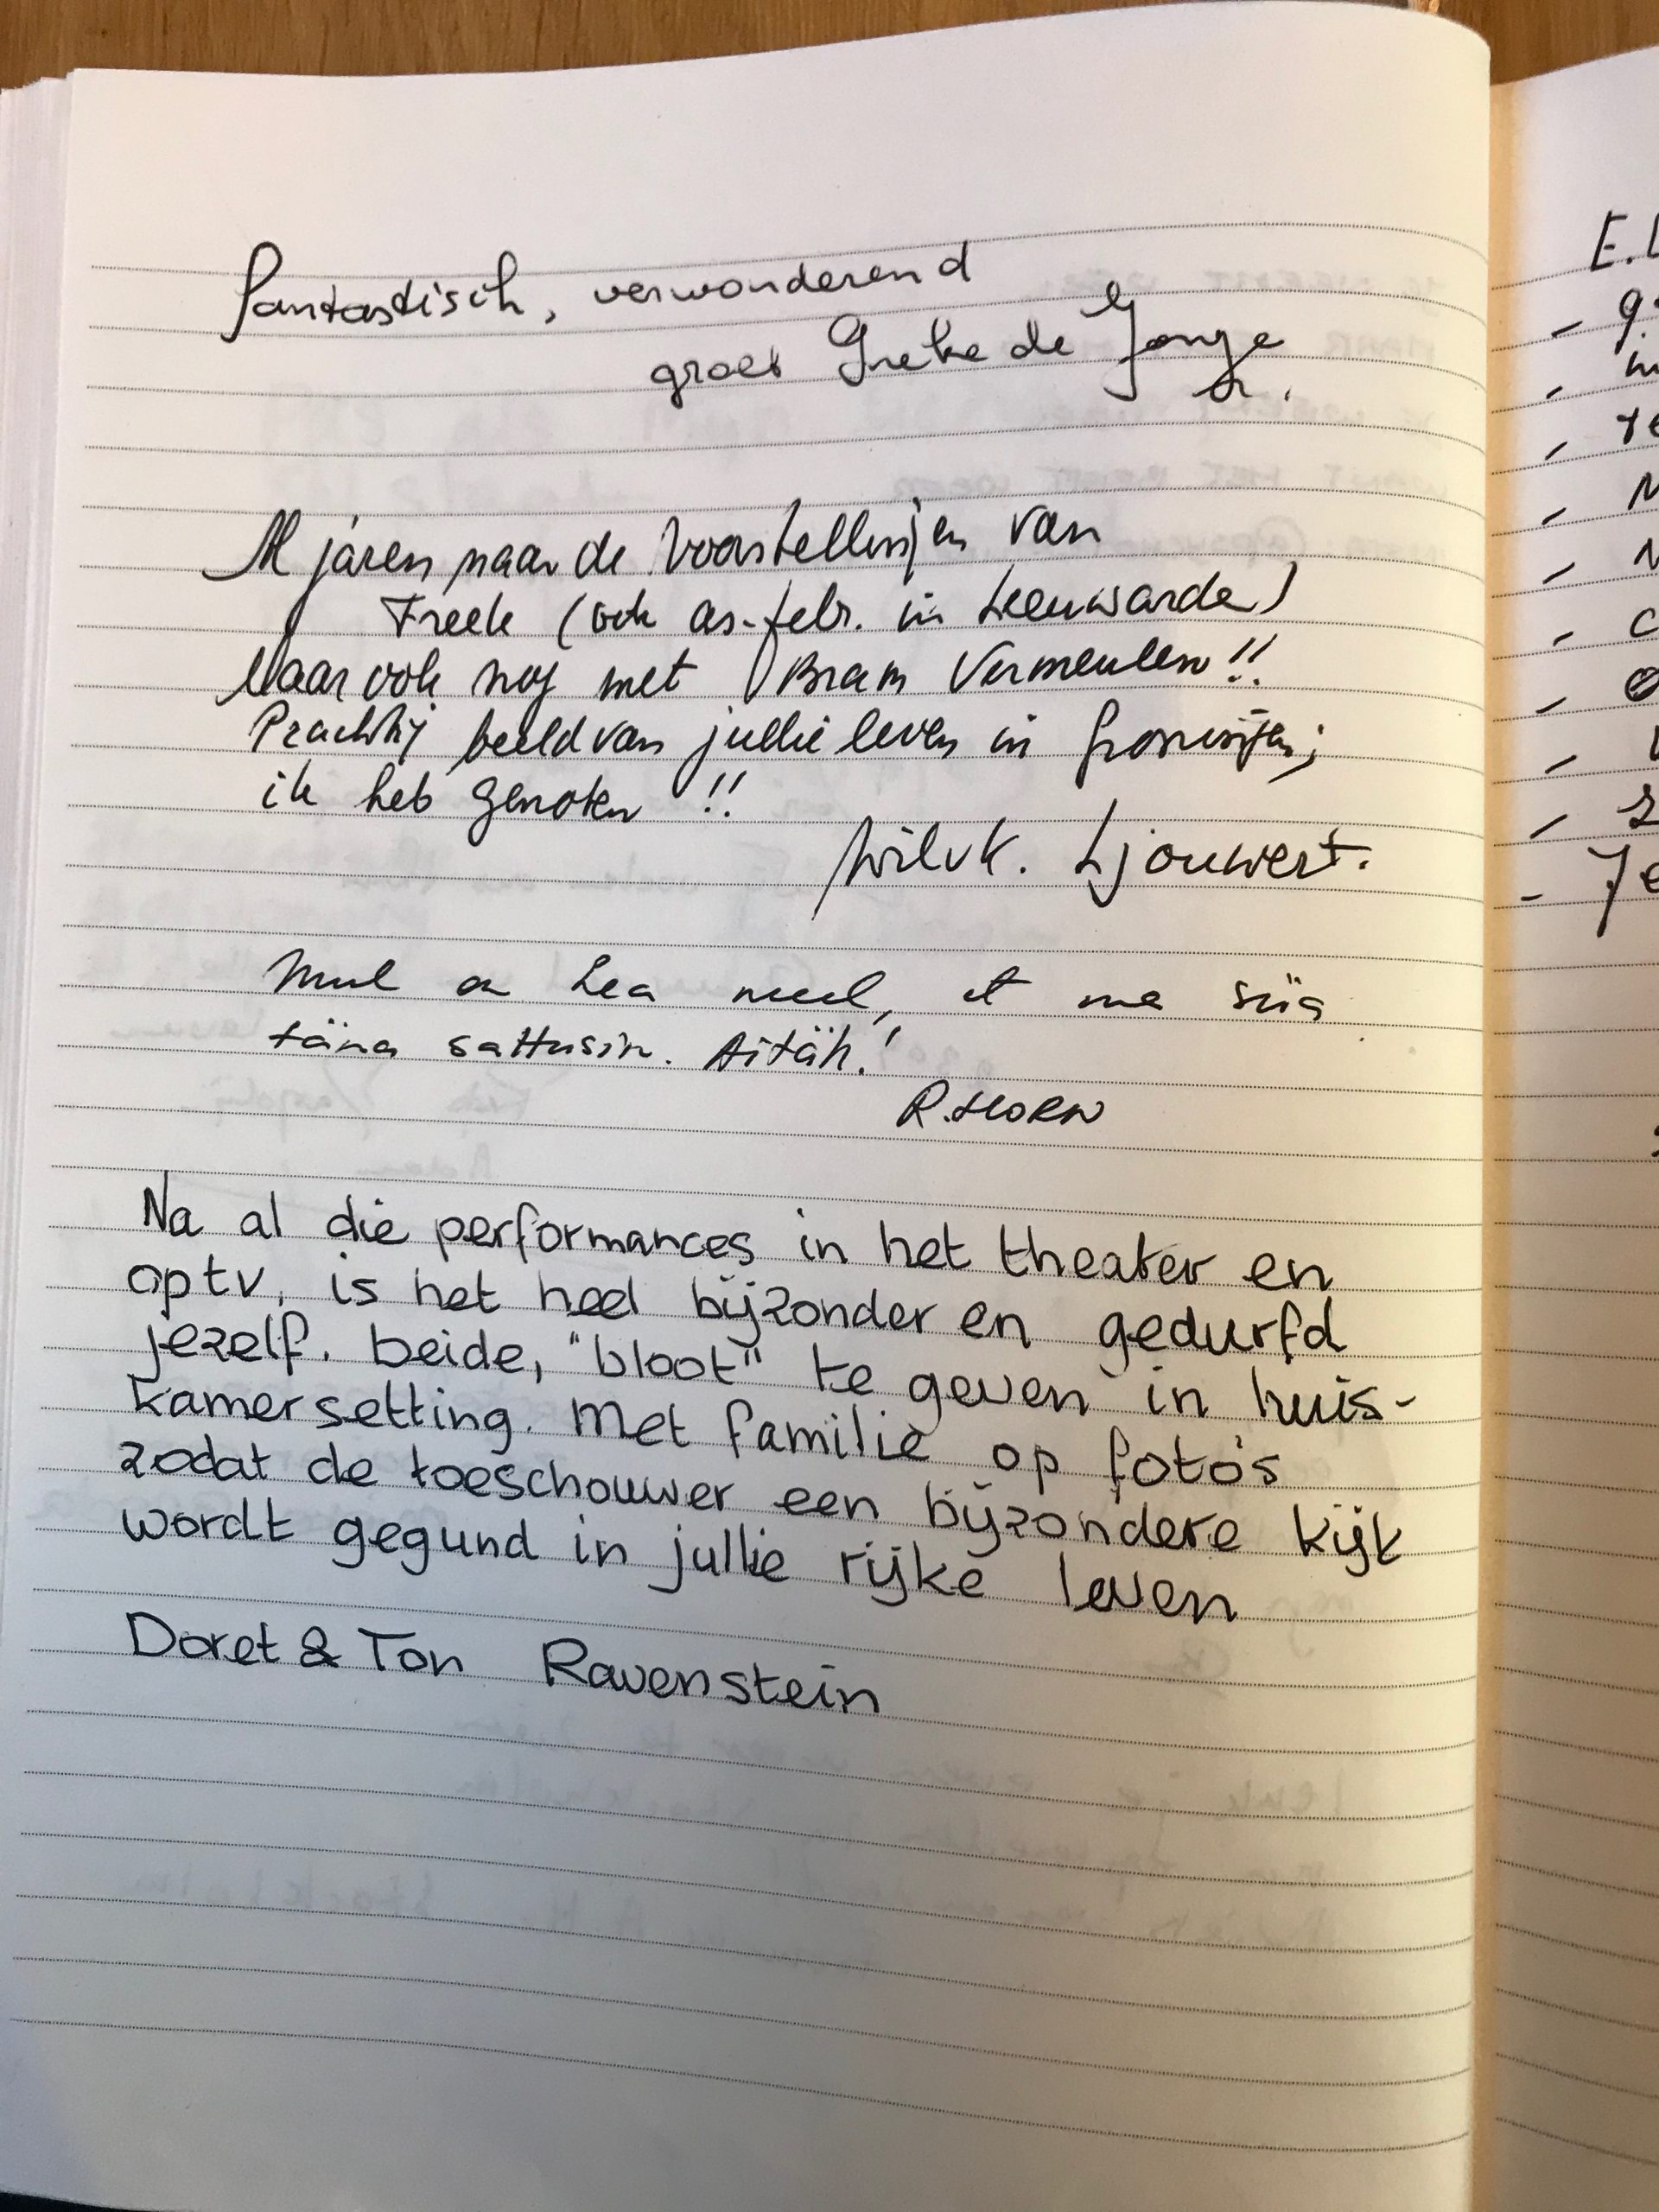 fantastisch, verwonderend
groet Gretha de Jonge
Al jaren naar de voorstellingen van
Freek (ook as. febr. in Leeuwarde)
Maar ook nog met Bram Vermeulen!!
Prachtig beeld van jullie leven in Groningen;
ik heb genoten !!
Wil vk. Ljouwert.
Mul on hea meel, et ma siia
täna sattusin. Aitäh!
R. HORN
Na al die performances in het theater en
op tv, is het heel bijzonder en gedurfd
jezelf, beide, "bloot" te geven in huis-
kamersetting. Met familie op foto's
zodat de toeschouwer een bijzondere kijk
wordt gegund in jullie rijke leven
Doret & Ton Ravenstein
E.